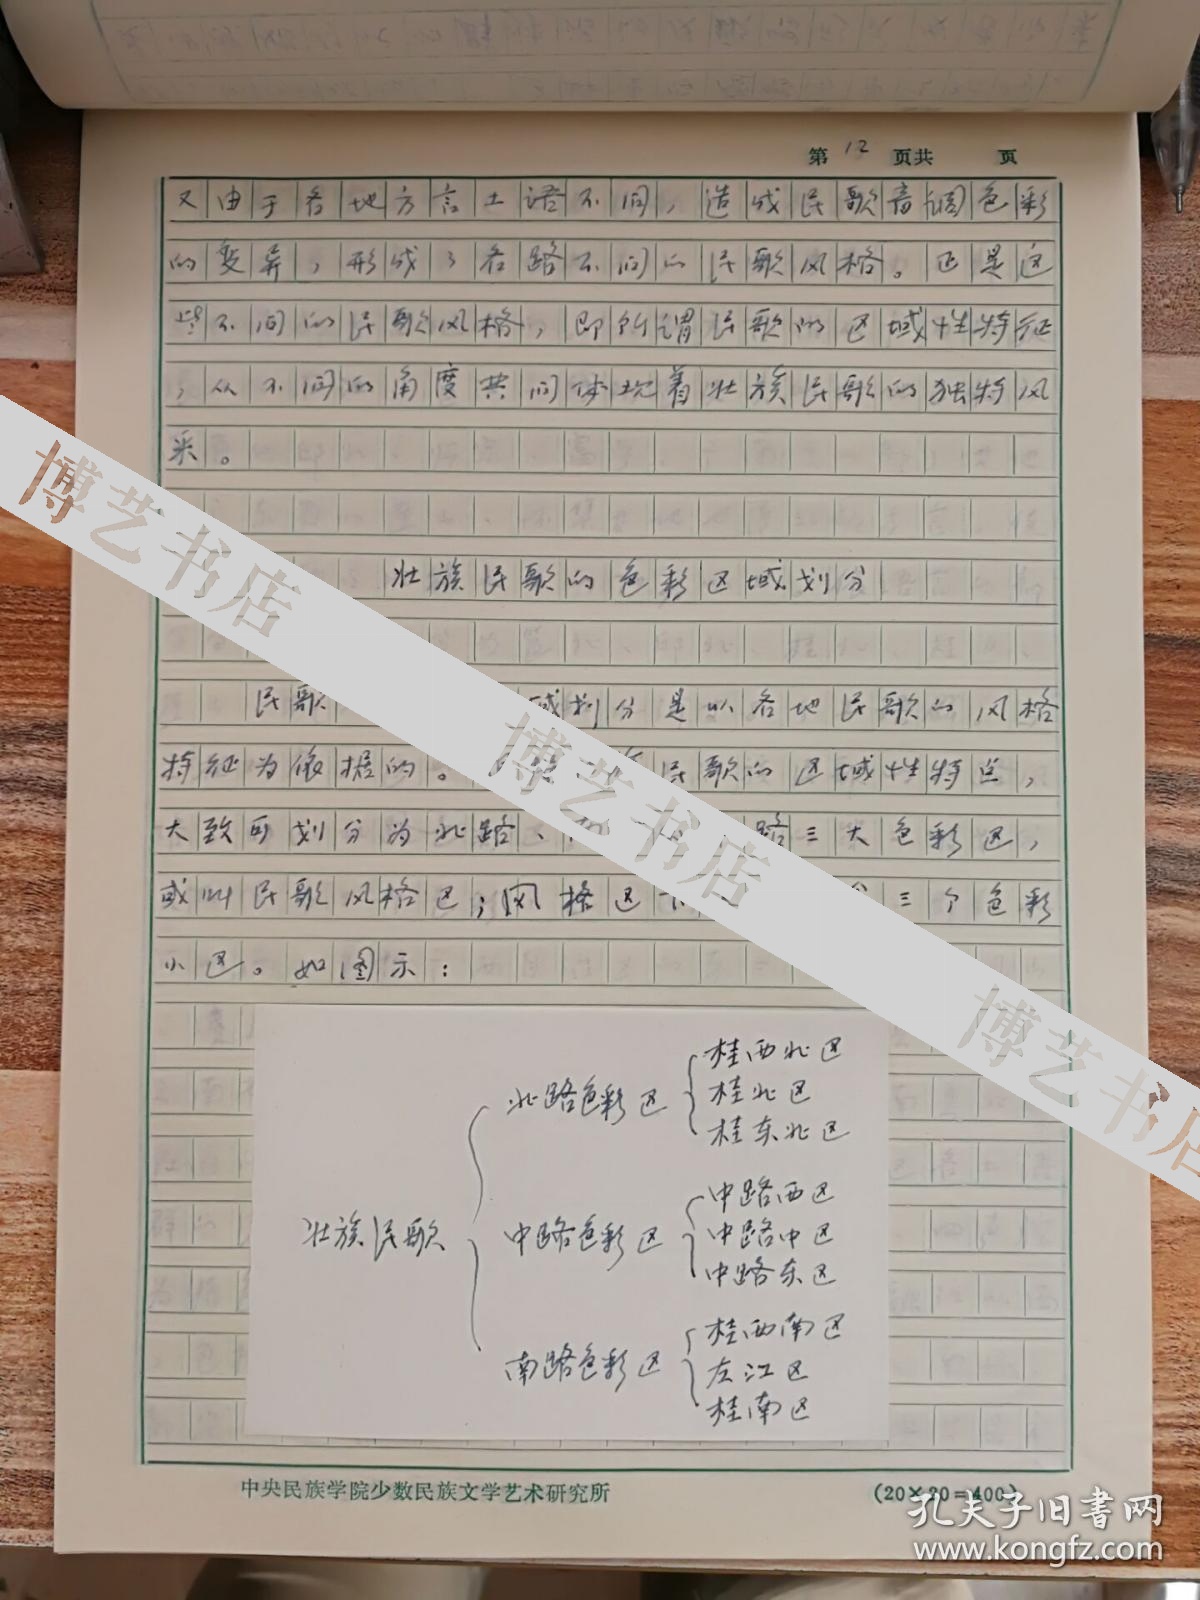 第12页共 页
又由于各地方言土语不同,造成民歌音调色彩
的变异,形成了各路不同的民歌风格。正是这
些不同的民歌风格,即所谓民歌的区域性特征
,从不同的角度共同体现着壮族民歌的独特风
采。
壮族民歌的色彩区域划分
民歌 域划分是以各地民歌的风格
特征为依据的。 民歌的区域性特点,
大致可划分为北路、 路三大色彩区,
或叫民歌风格区;风格区下 分三个色彩
小区。如图示:
壮族民歌
北路色彩区
桂西北区
桂北区
桂东北区
中路色彩区
中路西区
中路中区
中路东区
南路色彩区
桂西南区
左江区
桂南区
中央民族学院少数民族文学艺术研究所 (20×20=400)
博艺书店
博艺书店
博艺书店
孔夫子旧书网
www.kongfz.com